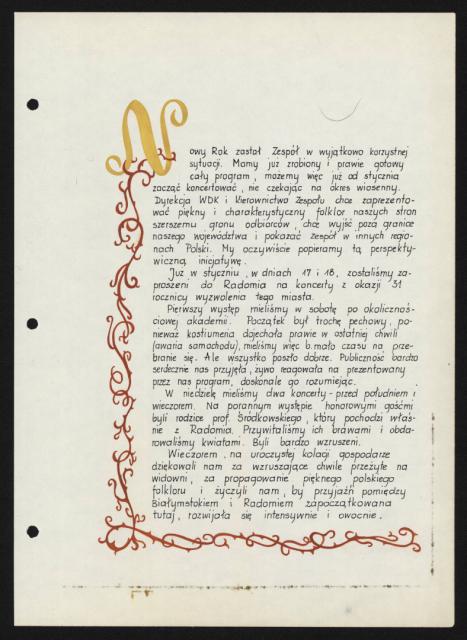 Nowy Rok zastał Zespół w wyjątkowo korzystnej
sytuacji. Mamy już zrobiony i prawie gotowy
cały program, możemy więc już od stycznia
zacząć koncertować, nie czekając na okres wiosenny.
Dyrekcja WDK i Kierownictwo Zespołu chce zaprezento-
wać piękny i charakterystyczny folklor naszych stron
szerszemu gronu odbiorców, chce wyjść poza granice
naszego województwa i pokazać zespół w innych regio-
nach Polski. My oczywiście popieramy tą perspekty-
wiczną inicjatywę.
Już w styczniu, w dniach 17 i 18, zostaliśmy za-
proszeni do Radomia na koncerty z okazji 31
rocznicy wyzwolenia tego miasta.
Pierwszy występ mieliśmy w sobotę po okoliczno-
ściowej akademii. Początek był trochę pechowy, po-
nieważ kostiumeria dojechała prawie w ostatniej chwili
(awaria samochodu), mieliśmy więc b. mało czasu na prze-
branie się. Ale wszystko poszło dobrze. Publiczność bardzo
serdecznie nas przyjęła, żywo reagowała na prezentowany
przez nas program, doskonale go rozumiejąc.
W niedzielę mieliśmy dwa koncerty - przed południem i
wieczorem. Na porannym występie honorowymi gośćmi
byli rodzice prof. Środkowskiego, który pochodzi właś-
nie z Radomia. Przywitaliśmy ich brawami i obda-
rowaliśmy kwiatami. Byli bardzo wzruszeni.
Wieczorem, na uroczystej kolacji gospodarze
dziękowali nam za wzruszające chwile przeżyte na
widowni, za propagowanie pięknego polskiego
folkloru i życzyli nam, by przyjaźń pomiędzy
Białymstokiem i Radomiem zapoczątkowana
tutaj, rozwijała się intensywnie i owocnie.